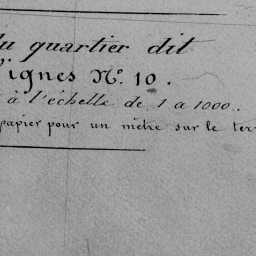 du quartier dit
Vignes N.º 10.
à l'échelle de 1 a 1000.
papier pour un mètre sur le ter